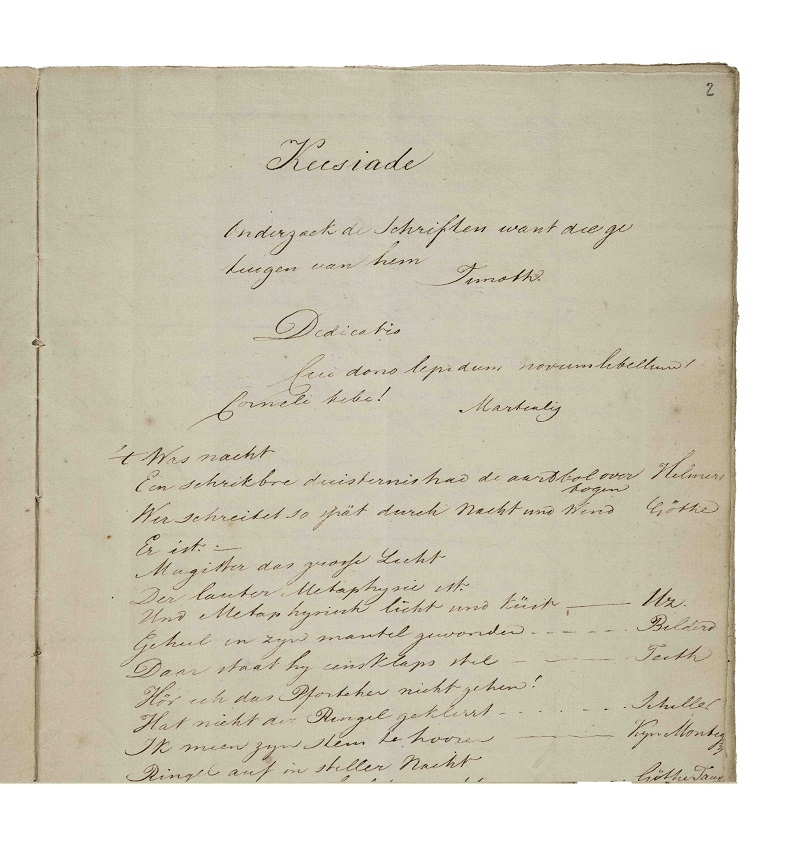 2
Keesiade
Onderzoek de Schriften want die ge
tuigen van hem
Timoth.
Dedicatio
Cui dono lepidum novum libellum!
Corneli tibi!
Martialis
't Was nacht
Een schrikbre duisternis had de aardbol over Helmers
togen
Wer schreitet so spät durch Nacht und Wind Göthe
Er ist. —
Magister das grosse Licht
Der lauter Metaphysic ist.
Und Metaphysisch licht und küsst —— Uz.
Geheel in zyn mantel gewonden - - - - Bilderd
Daar staat hy eensklaps stil - ——
Hör ich das Pförtchen nicht gehen!
Hat nicht der Riegel geklirrt - . . . . . . Schiller
Ik meen zyn stem te hooren - ——
auf in stiller Nacht
Göthe